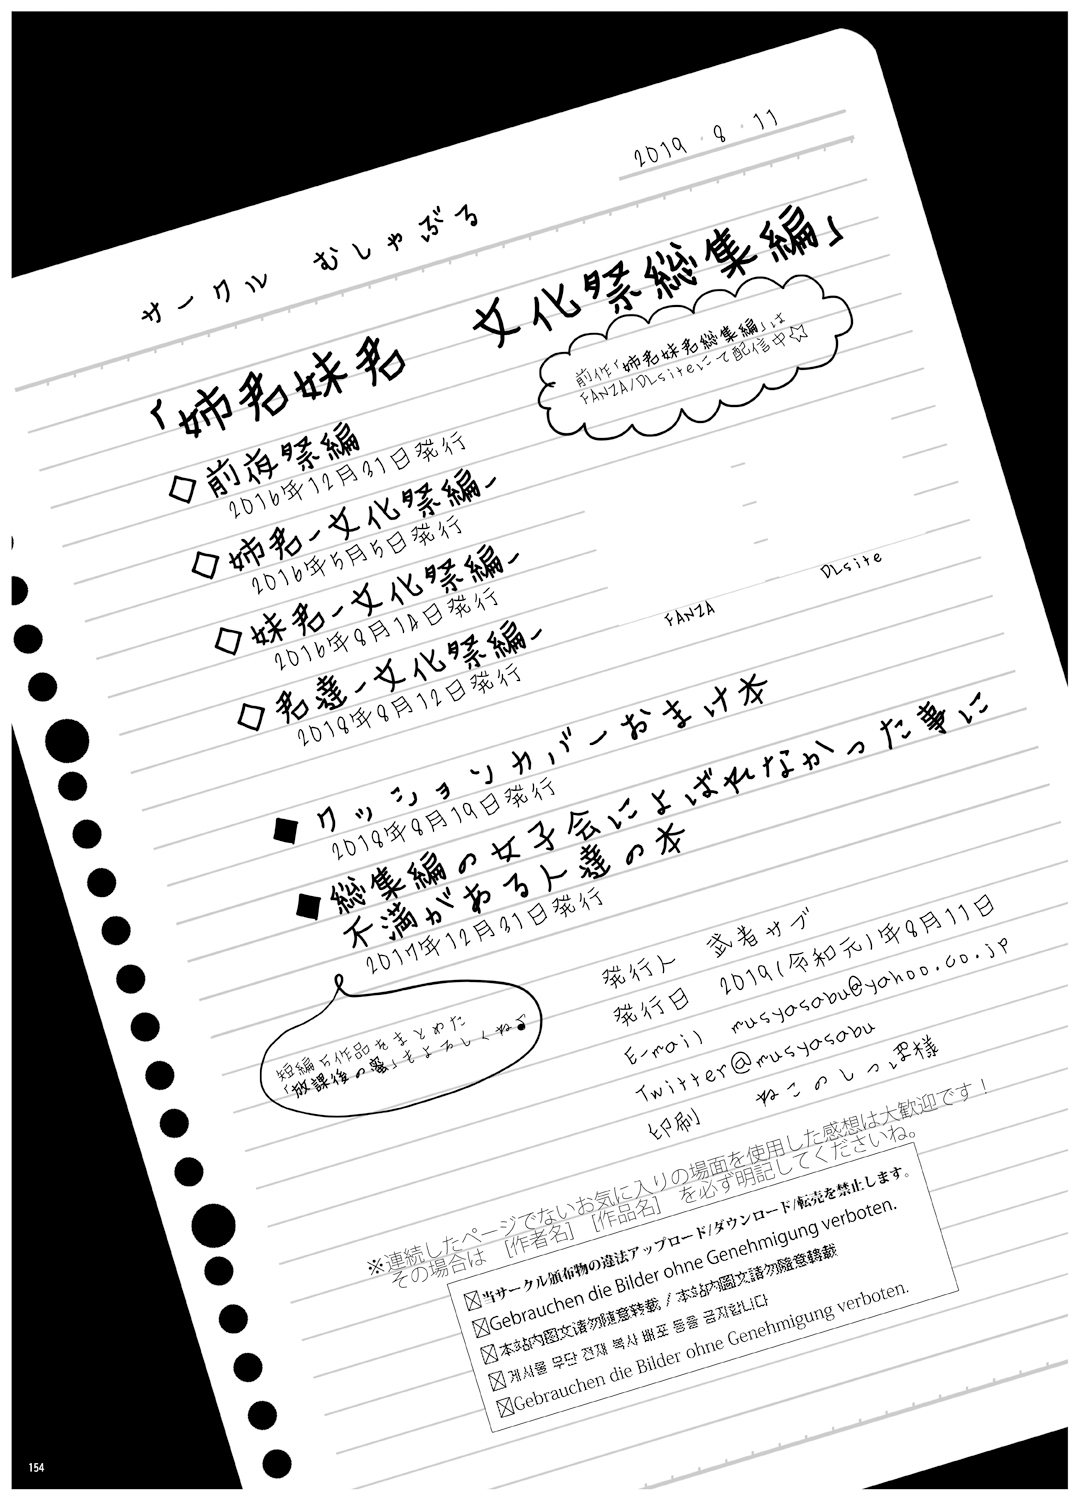 2019・8・11
サークル むしゃぶる
「姉君妹君 文化祭総集編」
前作「姉君妹君総集編」は
FANZA/DLsiteにて配信中☆
◇前夜祭編
2016年12月31日発行
◇姉君-文化祭編-
2016年5月5日発行
◇妹君-文化祭編-
2016年8月14日発行
◇君達-文化祭編-
2018年8月12日発行
FANZA
DLsite
◆クッションカバーおまけ本
2018年8月19日発行
◆総集編の女子会によばれなかった事に
不満がある人達の本
2017年12月31日発行
短編5作品をまとめた
「放課後の蜜」もよろしくね♪
発行人 武者サブ
発行日 2019(令和元)年8月11日
E-mail musyasabu@yahoo.co.jp
Twitter@musyasabu
印刷 ねこのしっぽ様
※連続したページでないお気に入りの場面を使用した感想は大歓迎です！
その場合は [作者名] [作品名] を必ず明記してくださいね。
☒当サークル頒布物の違法アップロード/ダウンロード/転売を禁止します。
☒Gebrauchen die Bilder ohne Genehmigung verboten.
☒本站内图文请勿随意转载 / 本站內圖文請勿隨意轉載
☒게시물 무단 전재 복사 배포 등을 금지합니다
☒Gebrauchen die Bilder ohne Genehmigung verboten.
154